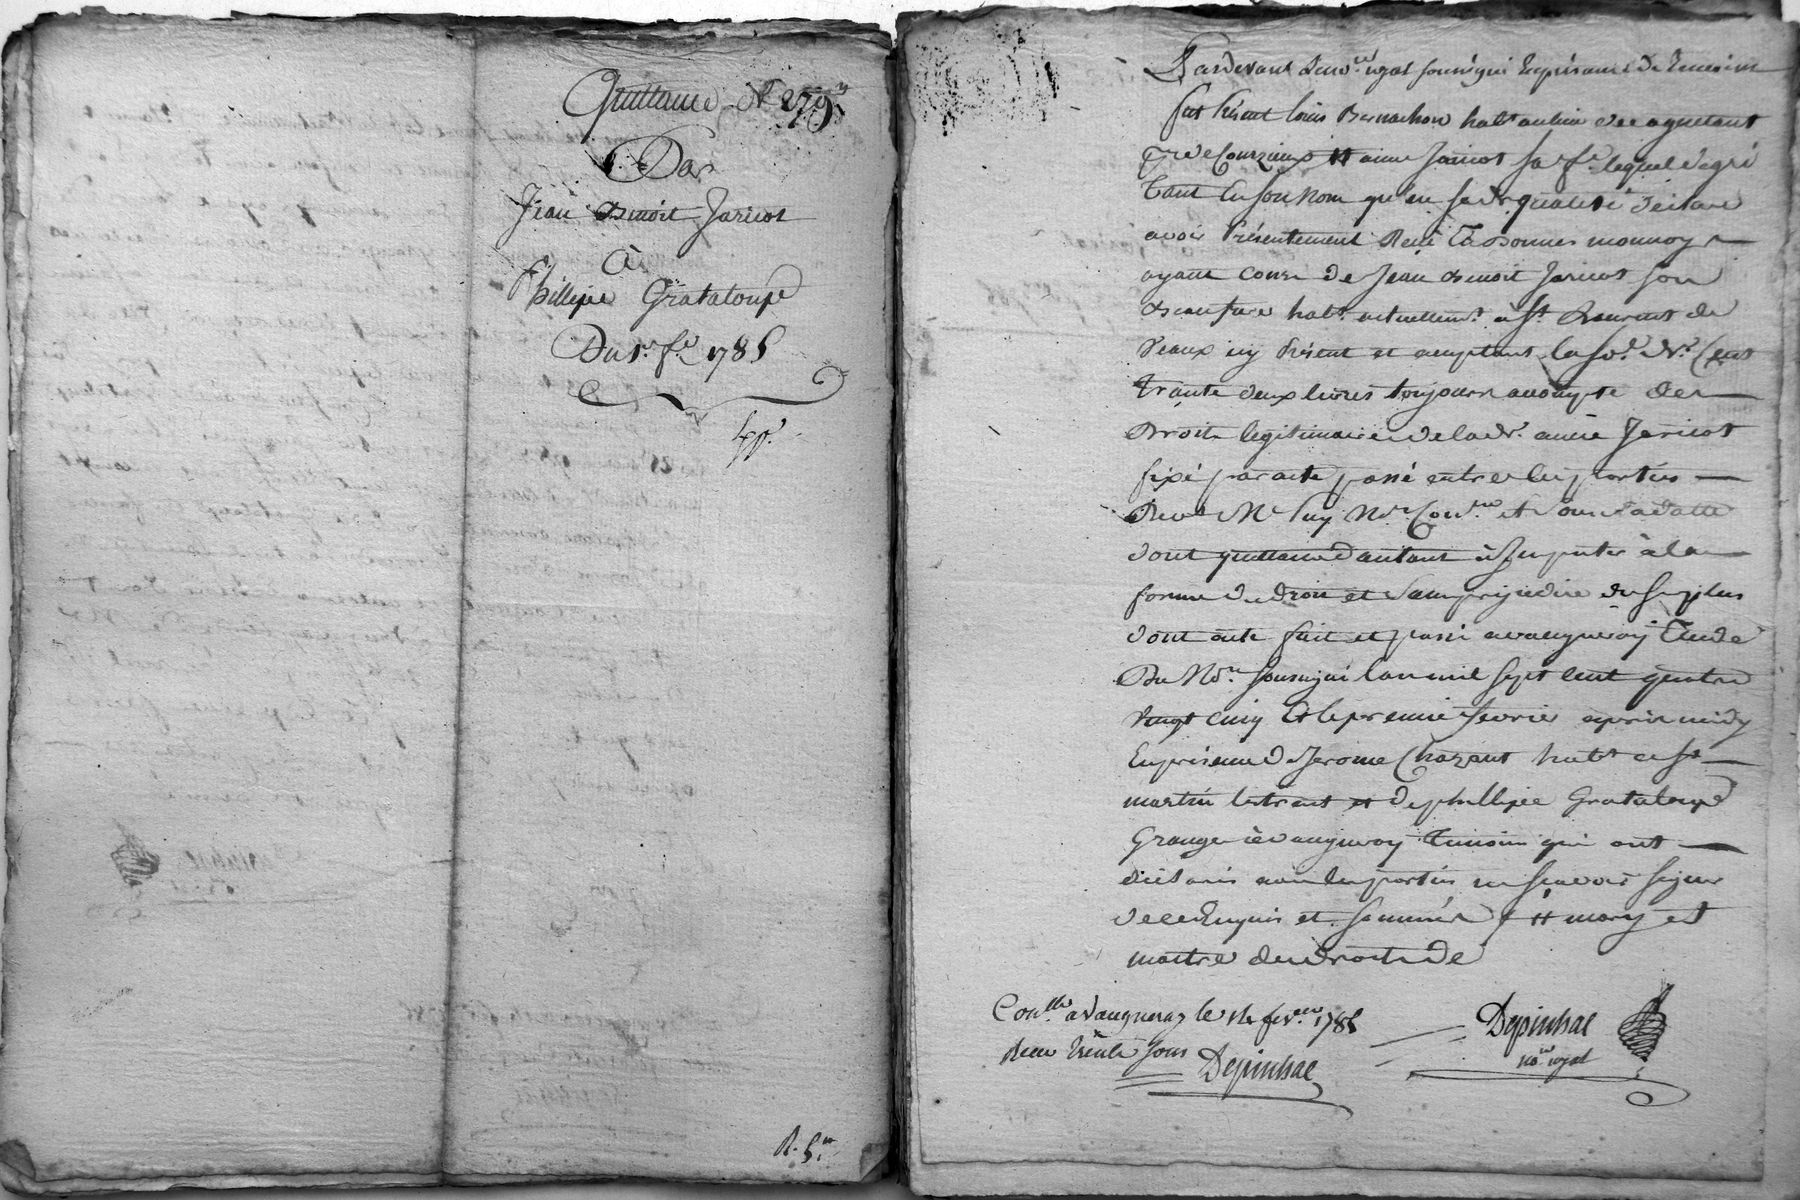 Quittance N° 279
Par
Jean Benoit Jaricot
à
Phillipe Grataloup
Du 1er fer 1785
R. 5 s
Pardevant le nore royal soussigné En présence de temoins
fut présent louis Bernachon habt au lieu de
de Courzieux # aimé Jaricot sa fe lequel de gré
tant En son Nom qu'en sa de qualité déclare
avoir Présentement Reçu En bonnes monnoy
ayant cours de Jean Benoit Jaricot son
Beaufrere habt actuellemt à St Laurent de
Veaux icy Présent et acceptant la se de Cent
trante deux livres toujours acompte des
Droits legitimaire de lade aimé Jaricot
fixé par acte passé entre les parties
Reçu Me Puy Nore et sous sa datte
dont quittance d'autant à Imputer à la
forme du droit et sans préjudice du surplus
dont acte fait et passé a vaugneray Etude
Du Nore soussigné l'an mil sept cent quatre
vingt cinq Et le premier fevrier après midy
En présence de Jerome Chazaut habt a St
martin lestraut et de phillipe Grataloup
Granger à vaugneray temoins qui ont
déclarés avec les parties ne scavoir signer
de ce Enquis et sommés # mary et
maitre des droits de
Conllé a Vaugneray le 14 fevrer 1785
Reçu trente sous Depinhac
Depinhac
nore royal